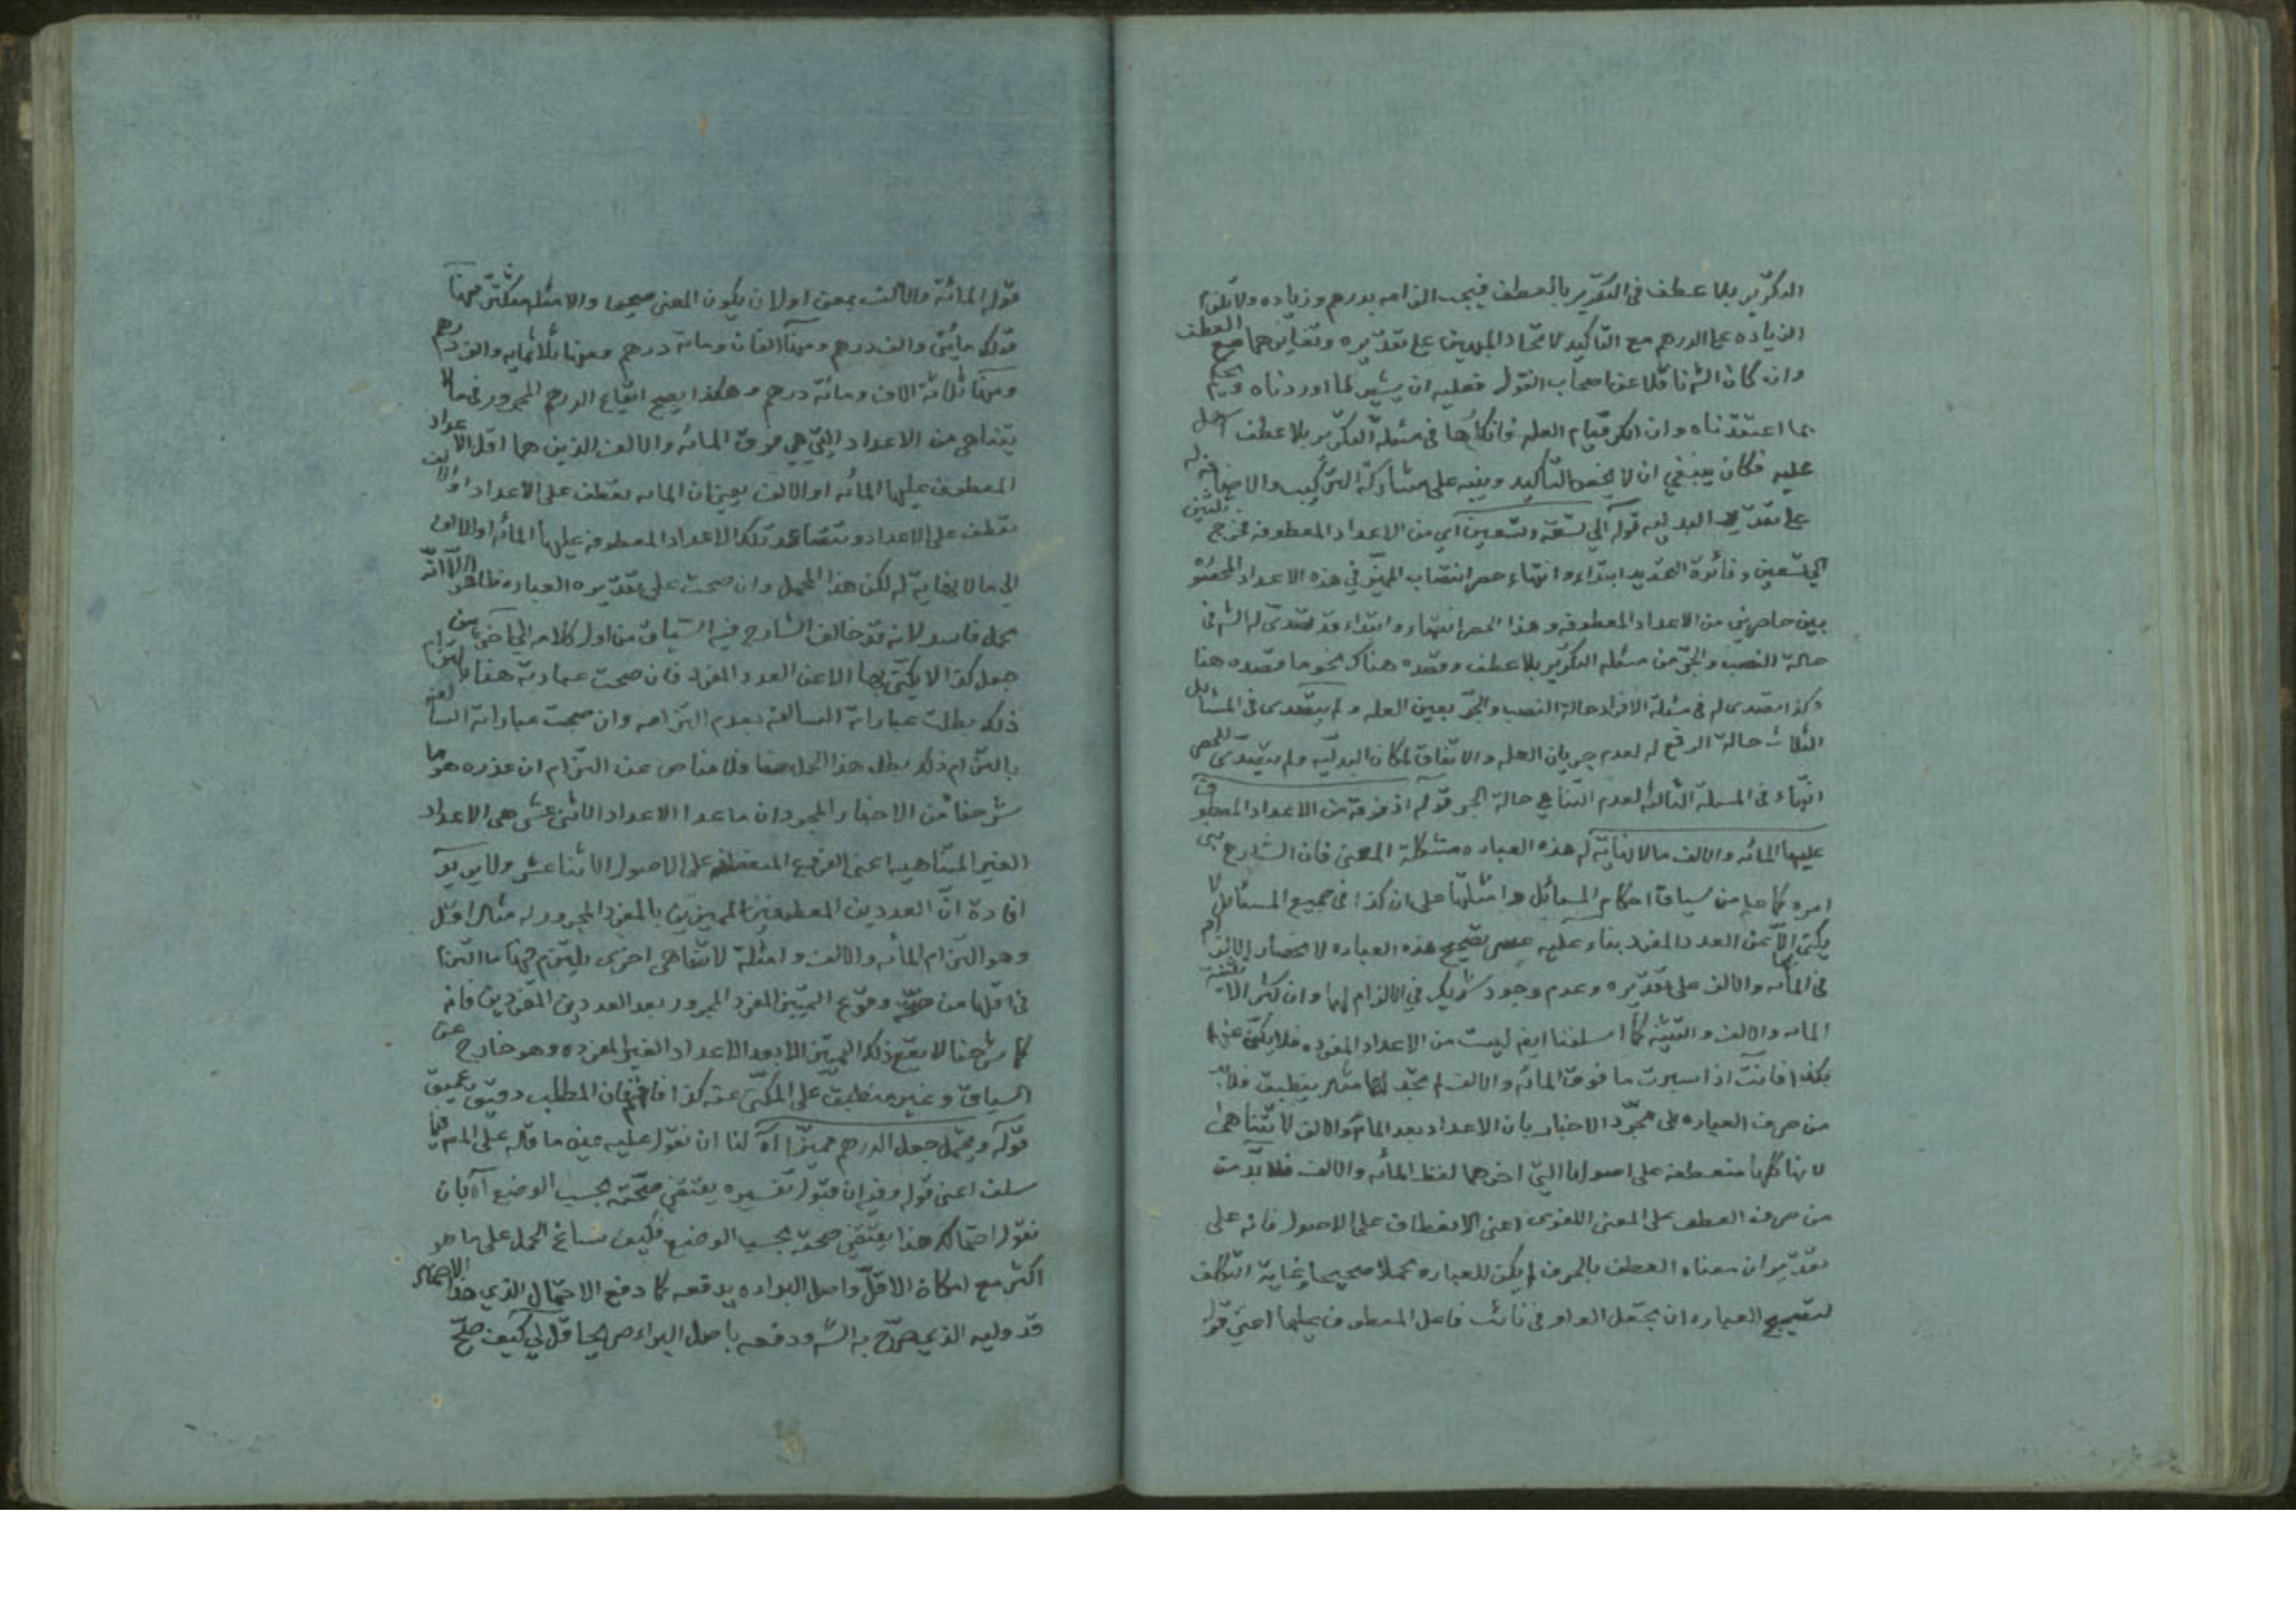 التكرير بلا عطف في التكرير بالعطف فيجب الزامه بدرهم وزياده ولا يلزم
الزياده على الدرهم مع التاكيد لاتحاد المبهمين على تقديره وتغايرهما مع العطف
وان كان الش ناقلا عن اصحاب القول فعليه ان يشير لما اوردناه ويحكم
بما اعتقدناه وان انكر قيام العله فانكارها في مسئلة التكرير بلا عطف
عليه فكان ينبغي ان لا يخص التاكيد وينبه على مشاركة التركيب والاضافة له
على تقدير البدليه قوله الي تسعة وتسعين اي من الاعداد المعطوفه فخرج ثلثين
الي تسعين وفائدة التحديد ابتداء وانتهاء حصر انتصاب المميز في هذه الاعداد المحصوره
بين حاصرين من الاعداد المعطوفه وهذا الحصر انتهاء وابتداء قد تصدى له الش في
حالة النصب والجر من مسئله التكرير بلا عطف وقصده هناك نحو ما قصده هنا
وكذا تصدى له في مسئلة الافراد حالة النصب والجر بعين العله ولم يتصدى في المسائل
الثلاث حالة الرفع له لعدم جريان العله والاتفاق لمكان البدليه ولم يتصدى للحصر
انتهاء في المسئلة الثالثه لعدم التناهي حالة الجر قوله اذ فوقه من الاعداد المعطوف
عليها المائه والالف ما لا نهاية له هذه العباره مشكلة المعنى فان الشارح
امره كما علم من سياق احكام المسائل وامثلتها على ان كذا في جميع المسائل لا
يكنى الا عن العدد المفرد بناء عليه عسر تصحيح هذه العباره لانحصار الالزام
في المائه والالف على تقديره وعدم وجود شريك في الالزام لهما وان كثر الا تثنية
المائه والالف والتثنية كما اسلفنا ايض ليست من الاعداد المفرده فلا يكنى عنها
بكذا فانت اذا سبرت ما فوق المائه والالف لم تجد لها مثالا ينطبق فلا بد
من صرف العباره الى مجرد الاخبار بان الاعداد بعد المائه والالف لا تتناهى
لانها كلها منعطفة على اصولها التي اخرهما لفظ المائه والالف فلا بد من
من صرف العطف على المعنى اللغوى اعنى الانعطاف على الاصول فانه على
تقدير ان معناه العطف بالحرف لم يكن للعباره محملا صحيحا وغاية التكلف
لتصحيح العباره ان تجعل الواو في نائب فاعل المعطوف عليها اعنى قوله
قوله المائة والالف بمعنى او لان يكون المعنى صحيحا والامثله متكثرة فمنها
قولك مائتى والف درهم ومنها الفان ومائة درهم ومنها ثلاثمايه والف درهم
ومنها ثلاثة الاف ومائة درهم وهكذا يصح ايقاع الدرهم المجرور في ما لا
يتناهى من الاعداد التي هي فوق المائه والالف الذين هما اقل الاعداد
المعطوف عليها المائه او الالف بمعنى ان المائه تعطف على الاعداد او الالف
تعطف على الاعداد وتتصاعد تلك الاعداد المعطوفه عليها المائه او الالف
الي ما لا نهاية له لكن هذا المحمل وان صحت على تقديره العباره ظاهرا الا انه
محمل فاسد لانه قد خالف الشارح فيه السياق من اول كلامه الى اخره من
جعل كذا لا يكنى بها الا عن العدد المفرد فان صحت عبارته هنا بالتزام
ذلك بطلت عباراته السالفه بعدم التزامه وان صحت عباراته السالفه
بالتزام ذلك بطل هذا المحمل هنا فلا مناص عن التزام ان عذره هو ما
شرحنا من الاخبار المجرد ان ما عدا الاعداد الاثنى عشر هي الاعداد
الغير المتناهيه اعنى الفروع المنعطفه على الاصول الاثنا عشر ولا يريد
افادة ان العددين المعطوفين المميزين بالمفرد المجرور له مثال اقل
وهو التزام المائه والالف وامثلة لا تتناهى اخرى يلتزم فيها ما التزم
في اقلها من صحة وقوع المميز المفرد المجرور بعد العددين المفردين فانه
كما شرحنا لا يقع ذلك المميز الا بعد الاعداد الغير المفرده وهو خارج عن
السياق وغير منطبق على المكنى عنه كذا فافهم فان المطلب دقيق عميق
قوله ويحتمل جعل الدرهم مميزا اه لنا ان نقول عليه عين ما قاله على المص فيما
سلف اعنى قوله وفيه ان قبول تفسيره يقتضي صحته بحسب الوضع اه بان
نقول احتمالك هذا يقتضي صحته بحسب الوضع فكيف ساغ الحمل على ما هو
اكثر مع امكان الاقل واصل البراءه يدفعه كما دفع الاحتمال الذي هذا الاحتمال
قد وليه الذي صرح به الش ودفعه باصل البراءه صريحا قل لي كيف صح